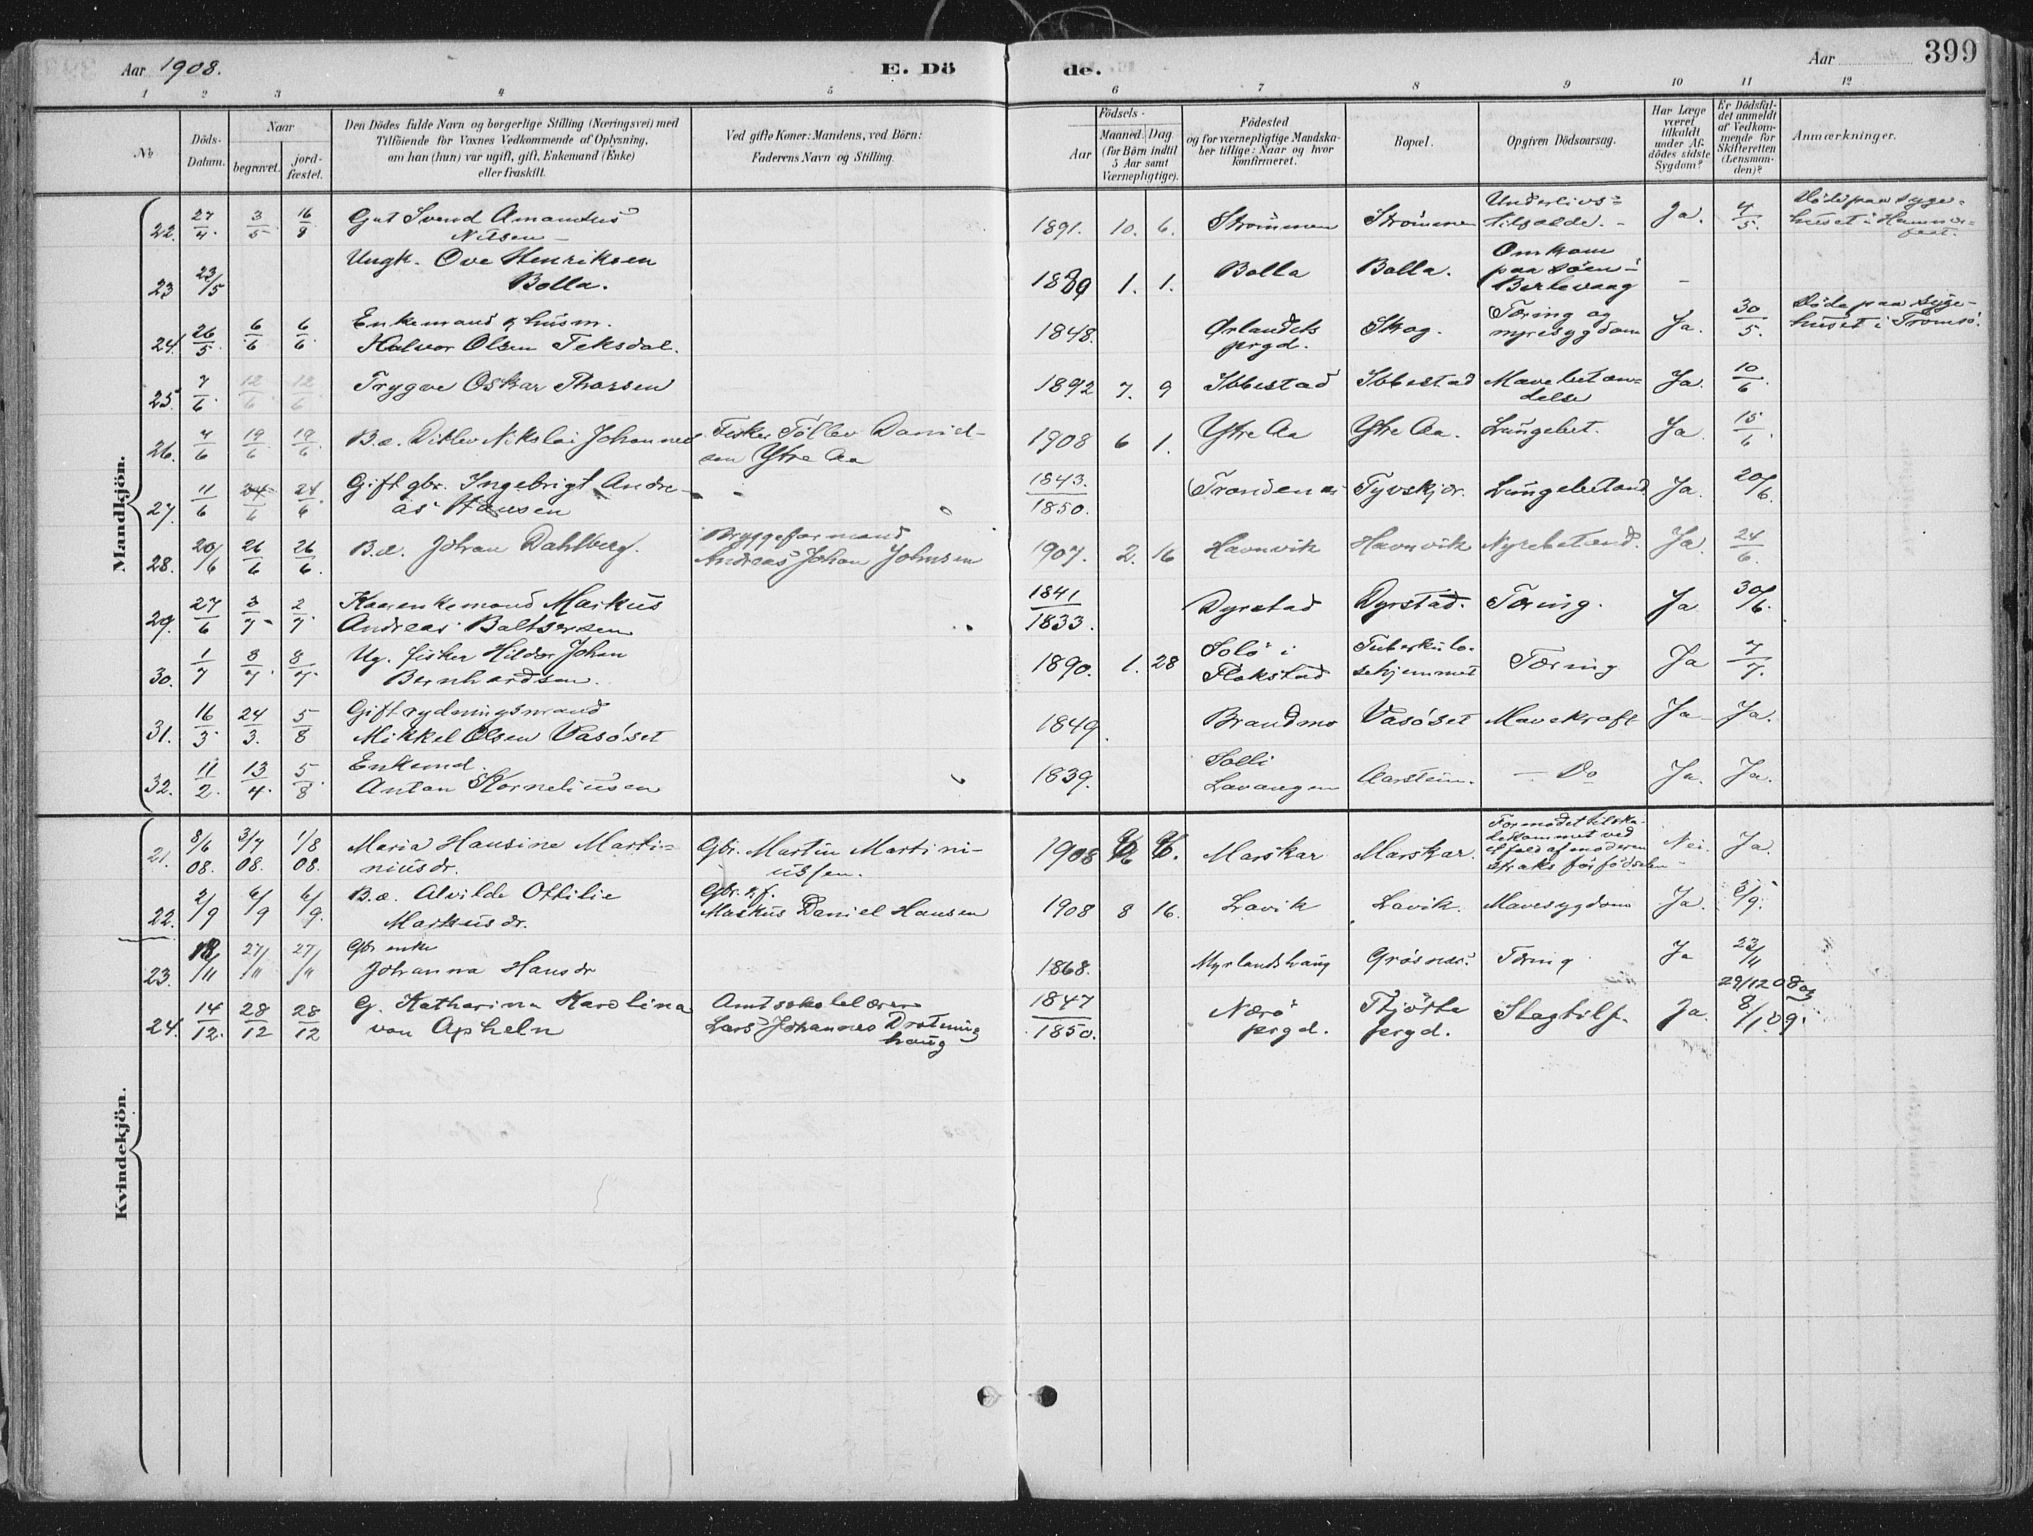 Aar 1908.
E. Dö
de.
Aar
399
1 2 3 4 5 6 7 8 9 10 11 12
No
Döds-Datum.
Naar
begravet.
jord-fæstet.
Den Dödes fulde Navn og borgerlige Stilling (Næringsvei) med
Tilföiende for Voxnes Vedkommende af Oplysning,
om han (hun) var ugift, gift, Enkemand (Enke)
eller fraskilt.
Ved gifte Koner: Mandens, ved Börn:
Faderens Navn og Stilling.
Födsels-
Aar
Maaned. Dag.
(for Börn indtil
5 Aar samt
Værnepligtige).
Födested
og for værnepligtige Mandska-
ber tillige: Naar og hvor
konfirmeret.
Bopæl.
Opgiven Dödsaarsag.
Har Læge
været
tilkaldt
under Af-
dödes sidste
Sygdom?
Er Dödsfal-
det anmeldt
af Vedkom-
mende for
Skifteretten
(Lensman-
den)?
Anmærkninger.
Mandkjön.
22. 27/4. 3/5 16/8 Gut Svend Amandus
Nilsen 1891. 10. 6. Strømmen Strømmen Underlivs-
tilfælde. Ja. 4/5. Døde paa syge-
huset i Hammer-
fest.
23 23/5 Ungk. Ove Henriksen
Bolla. 1889 1. 1. Bolla Bolla. Omkom
paa søen i
Berlevaag -
24. 26/5 6/6 6/6. Enkemand & husm.
Halvor Olsen Teksdal. 1848. Ørlandets
prgd. Skog. Tæring og
nyresygdom Ja. 30/5. Døde paa syge-
huset i Tromsø.
25. 7/6. 12/6 12/6 Trygve Oskar Thorsen 1892 7. 9 Ibbestad Ibbestad Mavebetæn-
delse Ja. 10/6.
26. 4/6 19/6. 19/6. B.æ. Ditlev Nikolai Johannes Fisker Tøllev Daniel-
sen Ytre Aa 1908 6 1. Ytre Aa Ytre Aa. Lungebet. Ja. 15/6.
27. 11/6 24/6 24/6. Gift gbr. Ingebrigt Andre-
as Hansen 1843/1850. Trondenes Tyvskjær. Lungebetænd. Ja. 20/6.
28. 20/6 26/6 26/6. B.æ. Johan Dahlberg. Bryggeformand
Andreas Johan Johnsen 1907. 2. 16 Havnvik Havnvik Nyrebetænd. Ja. 24/6.
29. 27/6 3/7 2/7. Kaarenkemand Markus
Andreas Baltsersen 1841/1833. Dyrstad Dyrstad. Tæring. Ja 30/6.
30. 1/7 8/7. 8/7. Ug. fisker Hildor Johan
Bernhardsen. 1890. 1. 28 Solø i
Flakstad Tuberkulo-
sehjemmet Tæring Ja 7/7.
31. 16/3 24/3. 5/8 Gift rydningsmand
Mikkel Olsen Vasøset 1849. Brandmo Vasøset Mavekræft Ja Ja.
32. 11/2. 13/4. 5/8. Enkemd.
Anton Korneliussen 1839. Solli
Lavangen Aarstein. — Do Ja. Ja.
Kvindekjön.
21. 8/6 08. 3/7 08. 1/8 08. Maria Hansine Marti-
niusdr. Gbr. Martin Martini-
ussen. 1908 Marskar Marskar. Formodet tilska-
dekommet ved
et fald af moderen
straks før fødselen Nei. Ja.
22. 2/9 6/9 6/9. B.æ. Alvilde Ottilie
Markusdr. Gbr. & f.
Markus Daniel Hansen 1908 8 16. Lavik Lavik. Mavesygdom Ja. 5/9.
23. 18/11 27/11 27/11 Gbr enke
Johanna Hansdr 1868. Myrlandshaug Grøsnes. Tæring Ja 23/11
24. 14/12. 28/12 28/12 G. Katharina Karolina
von Apheln Amtsskolelærer
Lars Johannes Drotning-
haug 1847/1850. Nærø
prgd. Tjøtta
prgd. Slagtilf. Ja. 29/12 08 og
8/1 09.